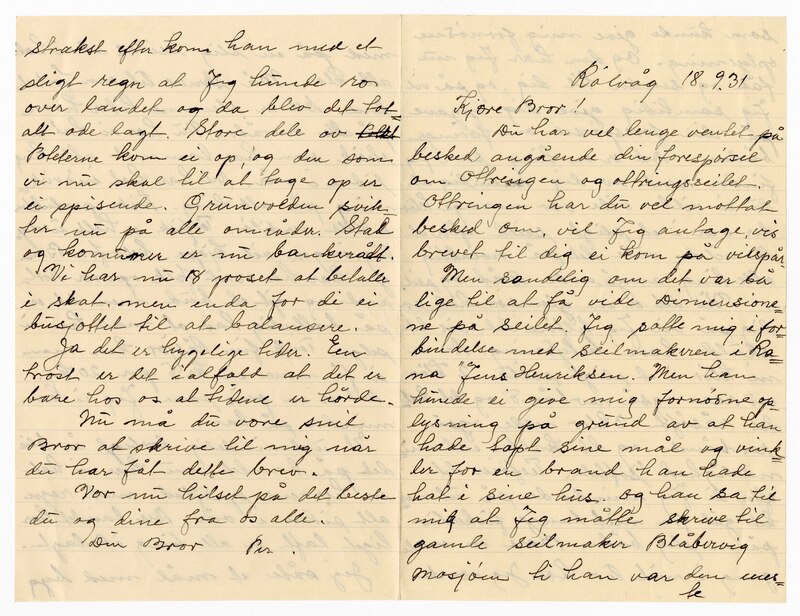 Rålvåg 18.9.31
Kjære Bror!
Du har vel lenge ventet på
besked angående din forespørsel
om Ottringen og ottringsseilet.
Ottringen har du vel mottat
besked om, vil Jeg antage, vis
brevet til dig ei kom på vilspår.
Men sandelig om det var så
lige til at få vide Dimensione-
ne på seilet. Jeg satte mig i for-
bindelse med seilmakeren i Ra-
na "Jens Henriksen. Men han
kunde ei give mig fornødne op-
lysning på grund av at han
hade tapt sine mål og vink-
ler for en brand han hade
hat i sine hus. og han sa til
mig at Jeg måtte skrive til
gamle seilmaker Blåbervig
Mosjøen ti han var den mes-
te
strakst efter kom han med et
sligt regn at Jeg kunde ro
over landet og da blev det tot-
alt øde lagt. Store dele av
Poteterne kom ei op, og den som
vi nu skal til at tage op er
ei spisende. Grunvolden svik-
ter nu på alle områder. Stat
og kommuner er nu bankerått.
Vi har nu 18 proset at betalle
i skat. men enda for de ei
busjottet til at balansere.
Ja det er hygelige tider. Een
trøst er det i alfald at det er
bare hos os at tidene er hårde.
Nu må du være snil
Bror at skrive til mig når
du har fåt dette brev.
Vær nu hilset på det beste
du og dine fra os alle.
Din Bror Per.